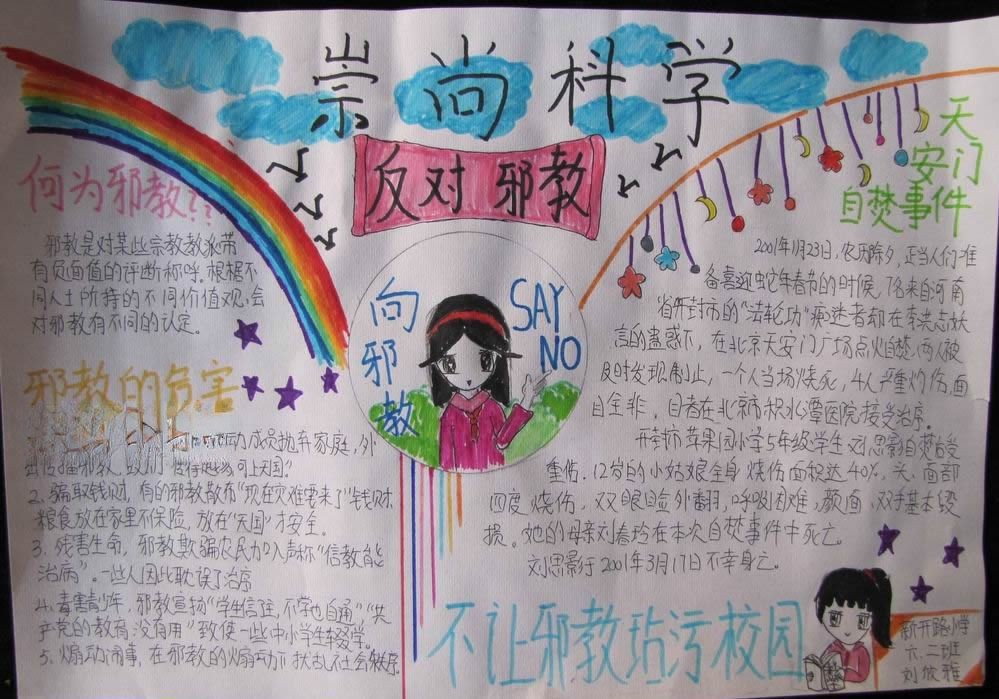 崇尚科学
反对邪教
何为邪教??
邪教是对某些宗教教派带
有负面值的评断称呼。根椐不
同人士所持的不同价值观,会
对邪教有不同的认定。
邪教的危害
动成员抛弃家庭,外
出传播邪教,
可上天国"
2、骗取钱财,有的邪教散布"现在灾难要来了"钱财
粮食放在家里不保险,放在"天国"才安全。
3、残害生命,邪教欺骗农民加入声称"信教能
治病"。一些人因此耽误了治疗
4、毒害青少年,邪教宣扬"学生信主,不学也自通""共
产党的教育没有用"致使一些中小学生辍学。
5、煽动闹事,在邪教的煽动下扰乱社会秩序
向邪教
SAY
NO
天
安门
自焚事件
2001年1月23日,农历除夕,正当人们准
备喜迎蛇年春节的时候,7名来自河南
省开封市的"法轮功"痴迷者却在李洪志妖
言的蛊惑下,在北京天安门广场点火自焚,两人被
及时发现制止,一个人当场烧死,4人严重灼伤,面
目全非,目者在北京市积水潭医院接受治疗。
开封市苹果园小学5年级学生刘思影自焚后受
重伤.12岁的小姑娘全身烧伤面积达40%,头、面部
四度烧伤,双眼睑外翻,呼吸困难,颜面、双手基本毁
损。她的母亲刘春玲在本次自焚事件中死亡。
刘思影于2001年3月17日不幸身亡。
不让邪教玷污校园
新开路小学
六、二班
刘
雅